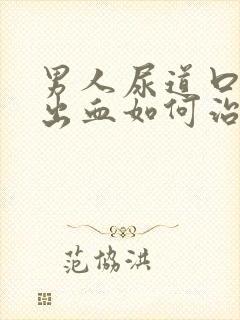 男人尿道口
出血如何治
范协洪